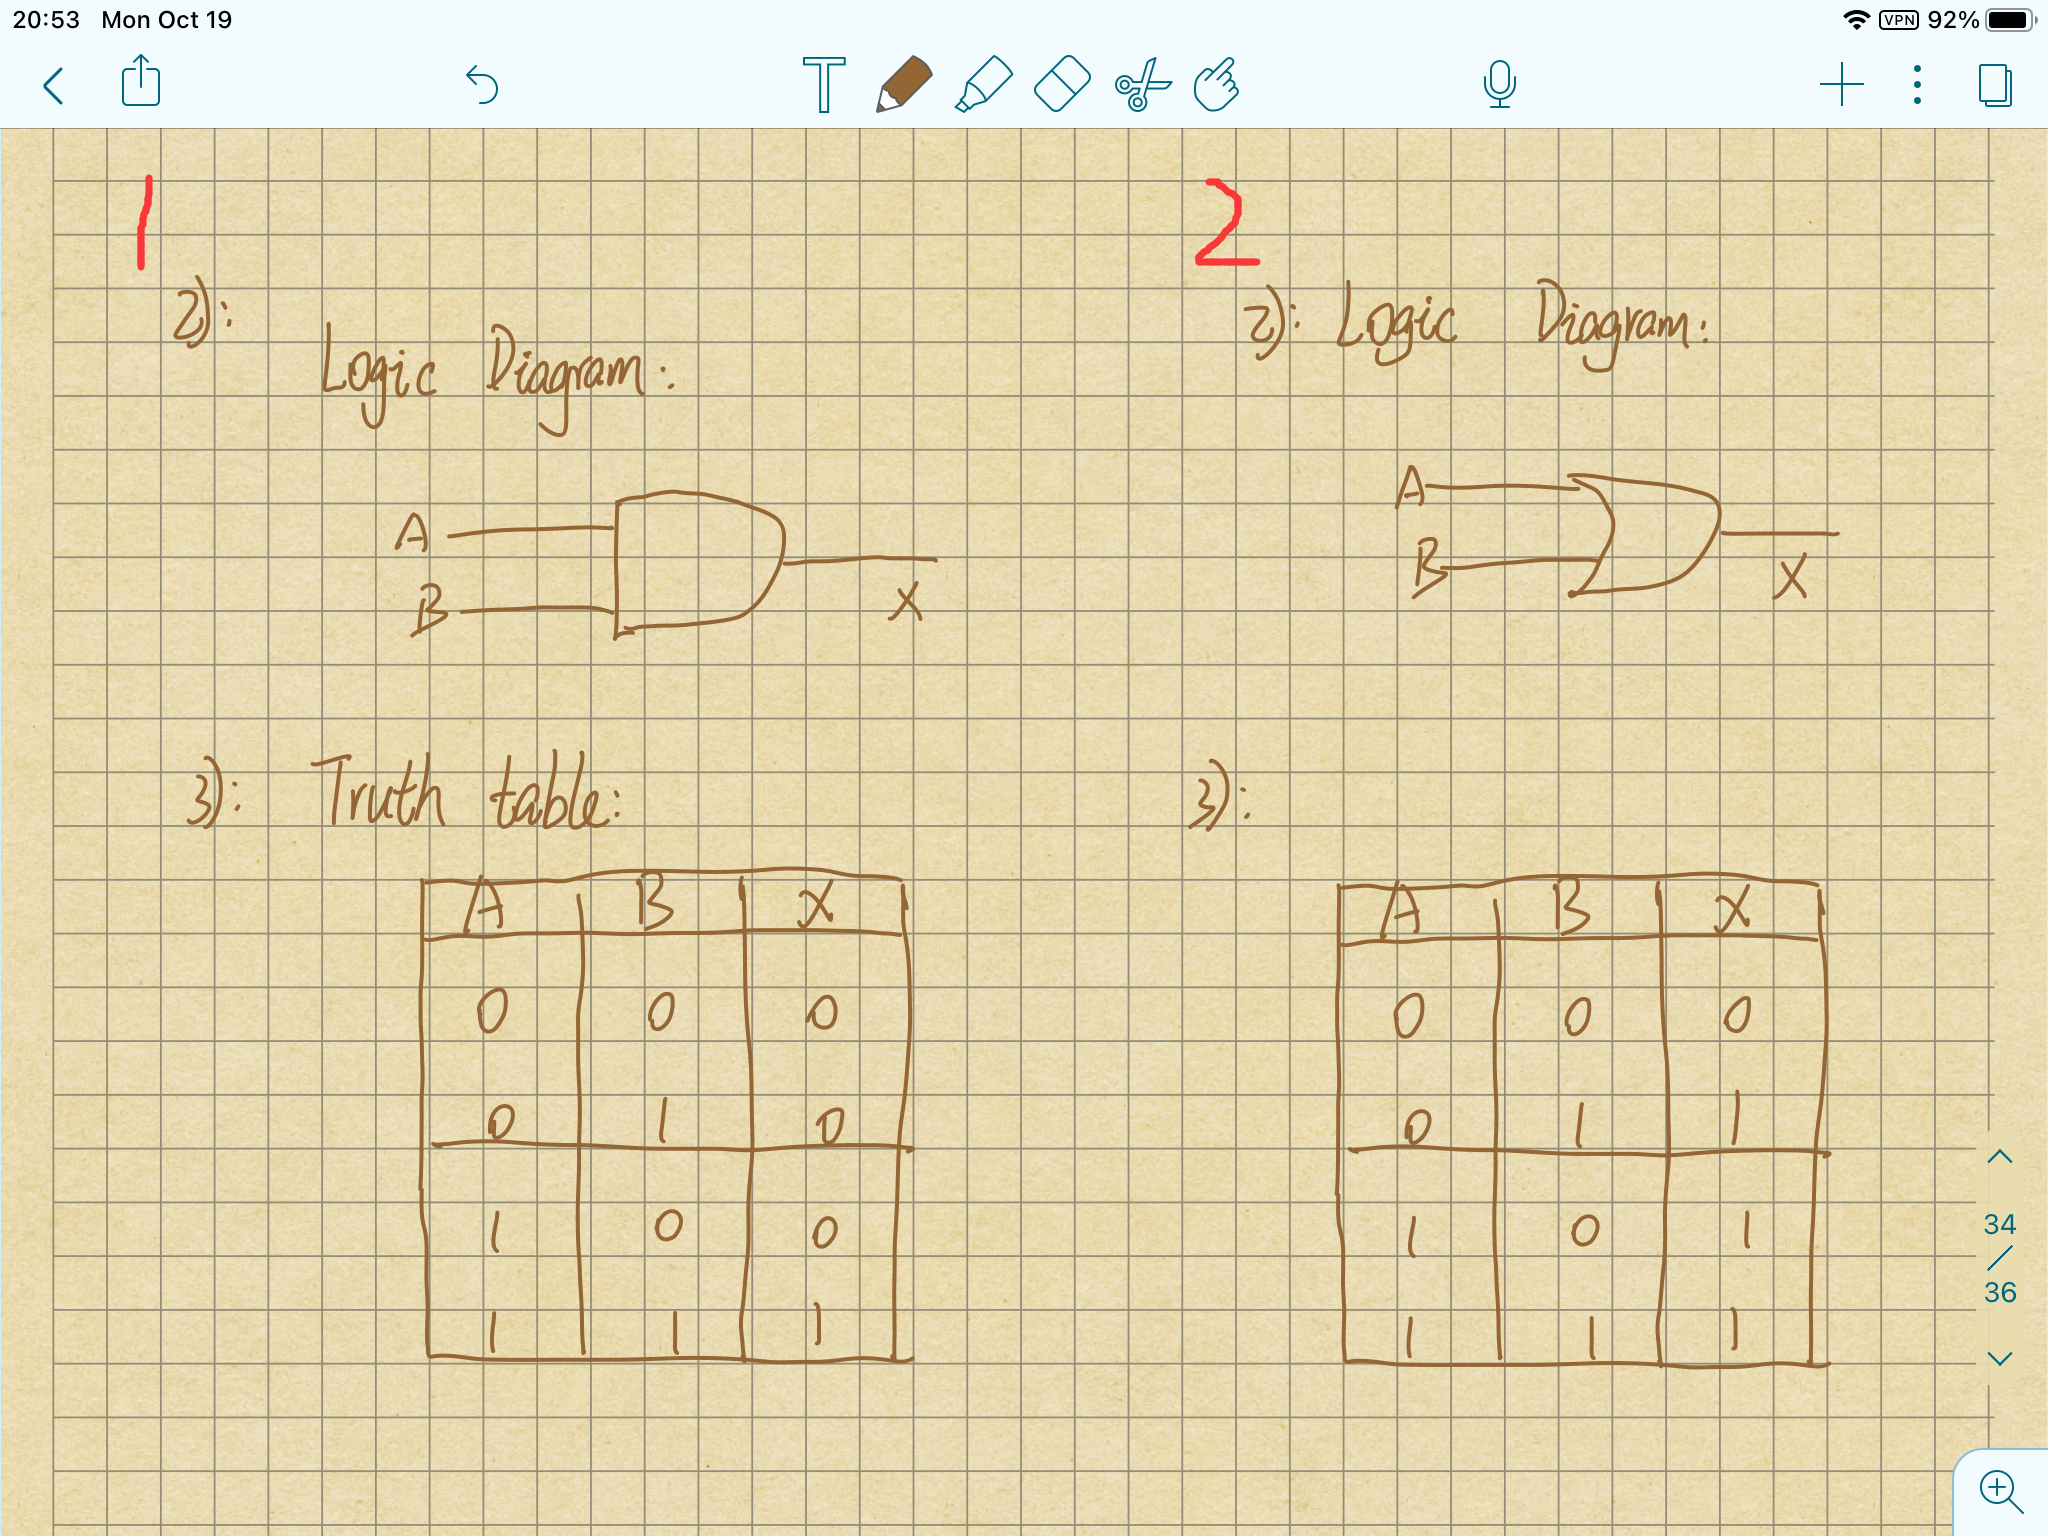 20:53 Mon Oct 19 VPN 92%
T
1
2): Logic Diagram:
A
B
X
3): Truth table:
A B X
0 0 0
0 1 0
1 0 0
1 1 1
2
2): Logic Diagram:
A
B
X
3):
A B X
0 0 0
0 1 1
1 0 1
1 1 1
34
/
36